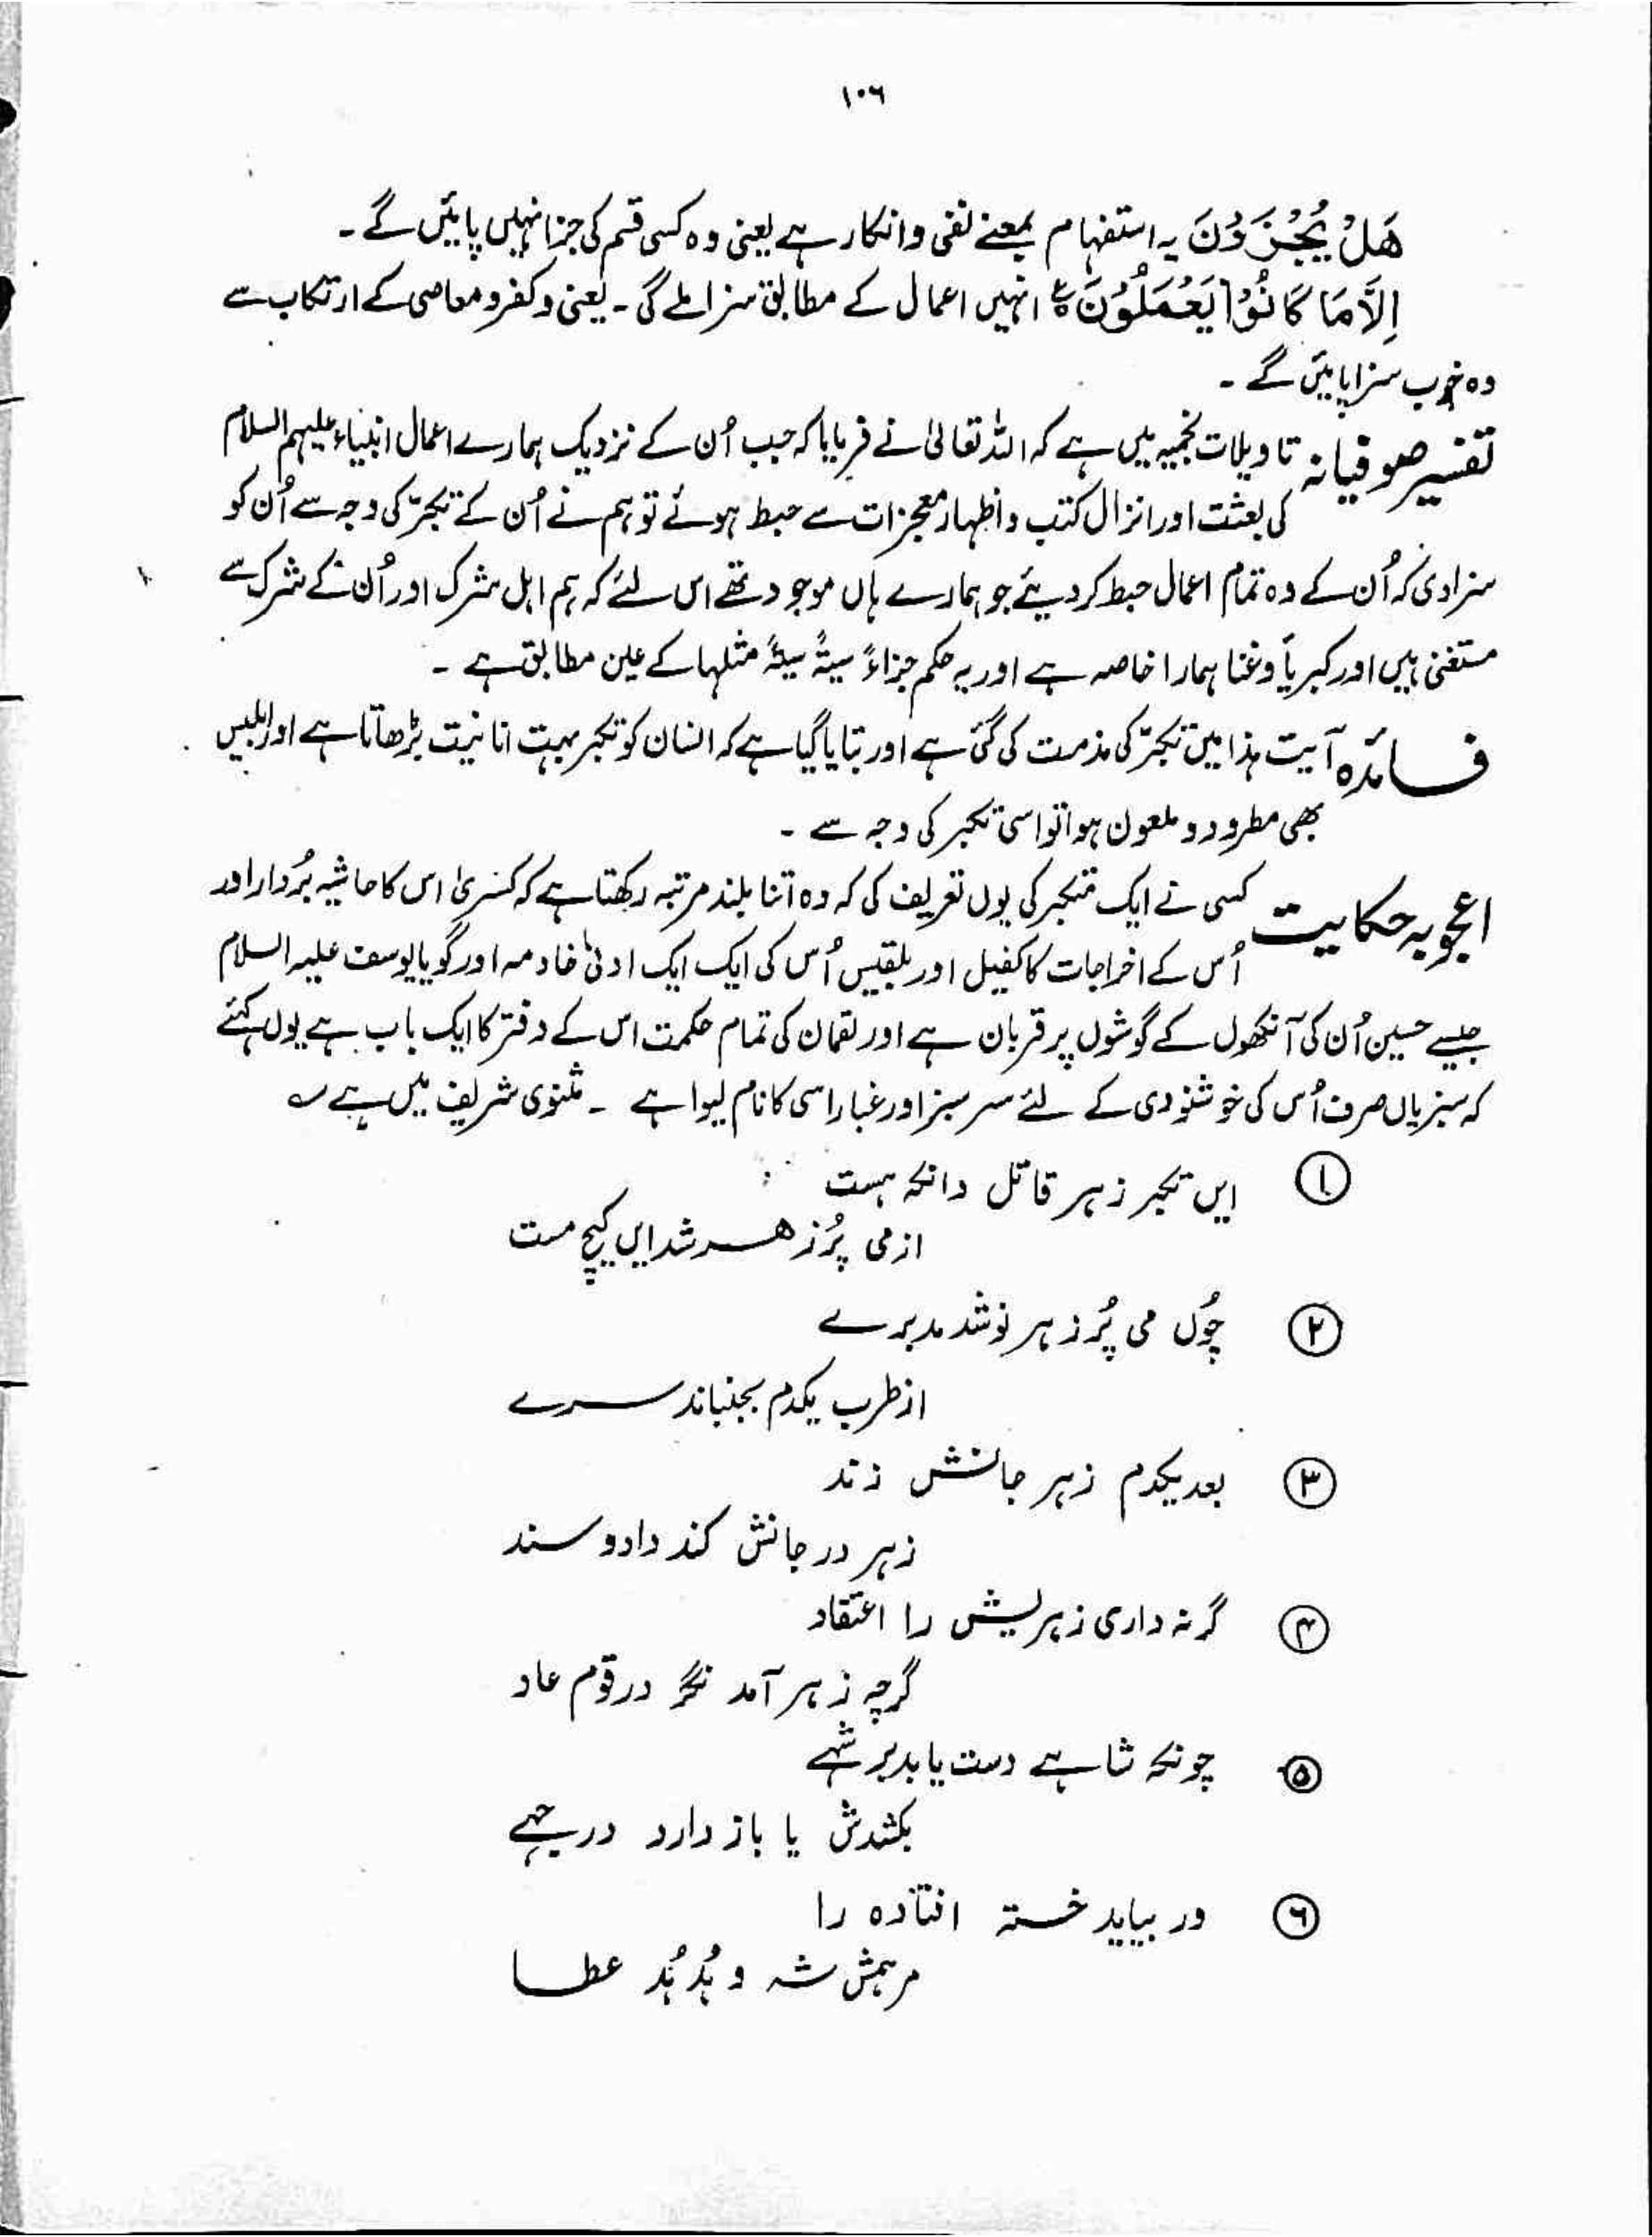 ۱۰۶
هَلْ يُجْزَوْنَ یہ استفہام بمعنے نفی وانکار ہے یعنی وہ کسی قسم کی جزا نہیں پائیں گے۔
اِلَّا مَا كَانُوْا يَعْمَلُوْنَ ع انہیں اعمال کے مطابق سزا ملے گی۔ یعنی وکفر ومعاصی کے ارتکاب سے
وہ خوب سزا پائیں گے۔
تفسیر صوفیانہ تاویلات نجمیہ میں ہے کہ اللہ تعالیٰ نے فرمایا کہ جب اُن کے نزدیک ہمارے اعمال انبیاء علیہم السلام
کی بعثت اور انزال کتب و اظہار معجزات سے حبط ہوئے تو ہم نے اُن کے تکبرّ کی وجہ سے اُن کو
سزا دی کہ اُن کے وہ تمام اعمال حبط کر دیئے جو ہمارے ہاں موجود تھے اس لئے کہ ہم اہل شرک اور اُن کے شرک سے
مستغنی ہیں اور کبریأ وغنا ہمارا خاصہ ہے اور یہ حکم جزاءُ سیئةٌ سیئةٌ مثلہا کے عین مطابق ہے ۔
فائدہ آیت ہذا میں تکبرّ کی مذمت کی گئی ہے اور بتایا گیا ہے کہ انسان کو تکبر بہت انانیت بڑھاتا ہے اور ابلیس
بھی مطرود و ملعون ہوا تو اسی تکبر کی وجہ سے ۔
اعجوبہ حکایت کسی نے ایک متکبر کی یوں تعریف کی کہ وہ اتنا بلند مرتبہ رکھتا ہے کہ کسریٰ اس کا حاشیہ بُردار اور
اُس کے اخراجات کا کفیل اور بلقیس اُس کی ایک ایک ادنیٰ خادمہ اور گویا یوسف علیہ السلام
جیسے حسین اُن کی آنکھوں کے گوشوں پر قربان ہے اور لقمان کی تمام حکمت اس کے دفتر کا ایک باب ہے یوں کہئے
کہ سبزیاں صرف اُس کی خوشنودی کے لئے سرسبز اور غبار اسی کا نام لیوا ہے ۔ مثنوی شریف میں ہے ؎
① ایں تکبر زہر قاتل دانکہ ہست
از می پُر زھر شد ایں گیج مست
② چُوں می پُر زہر نوشد مدبرے
از طرب یکدم بجنباند سرے
③ بعد یکدم زہر جانش زند
زہر در جانش کند داد و ستد
④ گر نہ داری زہریش را اعتقاد
گرچہ زہر آمد نگر در قوم عاد
⑤ چونکہ شاہے دست یابد بر شہے
بکشدش یا باز دارد در چہے
⑥ ور بیابد خستہ افتادہ را
مرہمش شہ و بُدہُد عطا